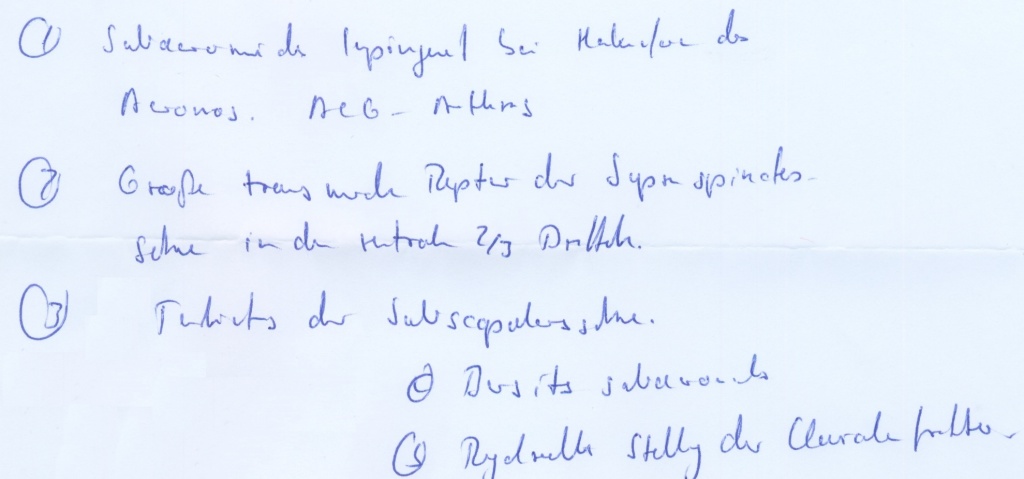 ① Subacromiales Impingement bei Hakenform des
Acromions. ACG-Arthrose
② Große transmurale Ruptur der Supraspinatus-
sehne in den ventralen 2/3 Dritteln.
③ Tendinitis der Subscapularissehne.
④ Bursitis subacromialis
⑤ Stellung der Claviculafraktur